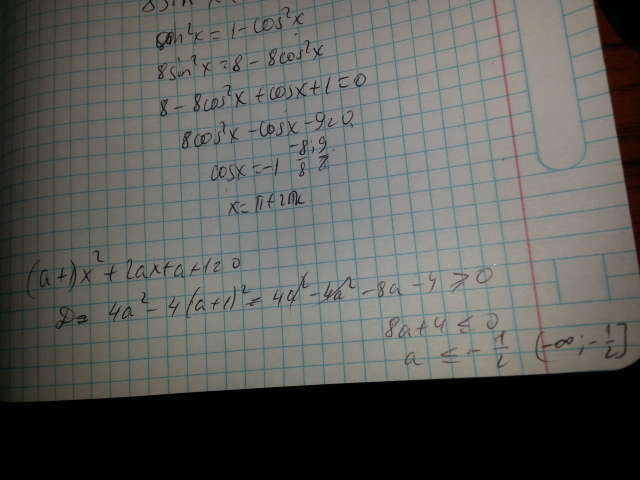 8sin
sin²x = 1 - cos²x
8sin²x = 8 - 8cos²x
8 - 8cos²x + cosx + 1 = 0
8cos²x - cosx - 9 = 0
cosx = -1 -8/8 ; 9/8
x = π + 2πk
(a+1)x² + 2ax + a + 1 = 0
D = 4a² - 4(a+1)² = 4a² - 4a² - 8a - 4 ≥ 0
8a + 4 ≤ 0
a ≤ - 1/2 (-∞; -1/2]